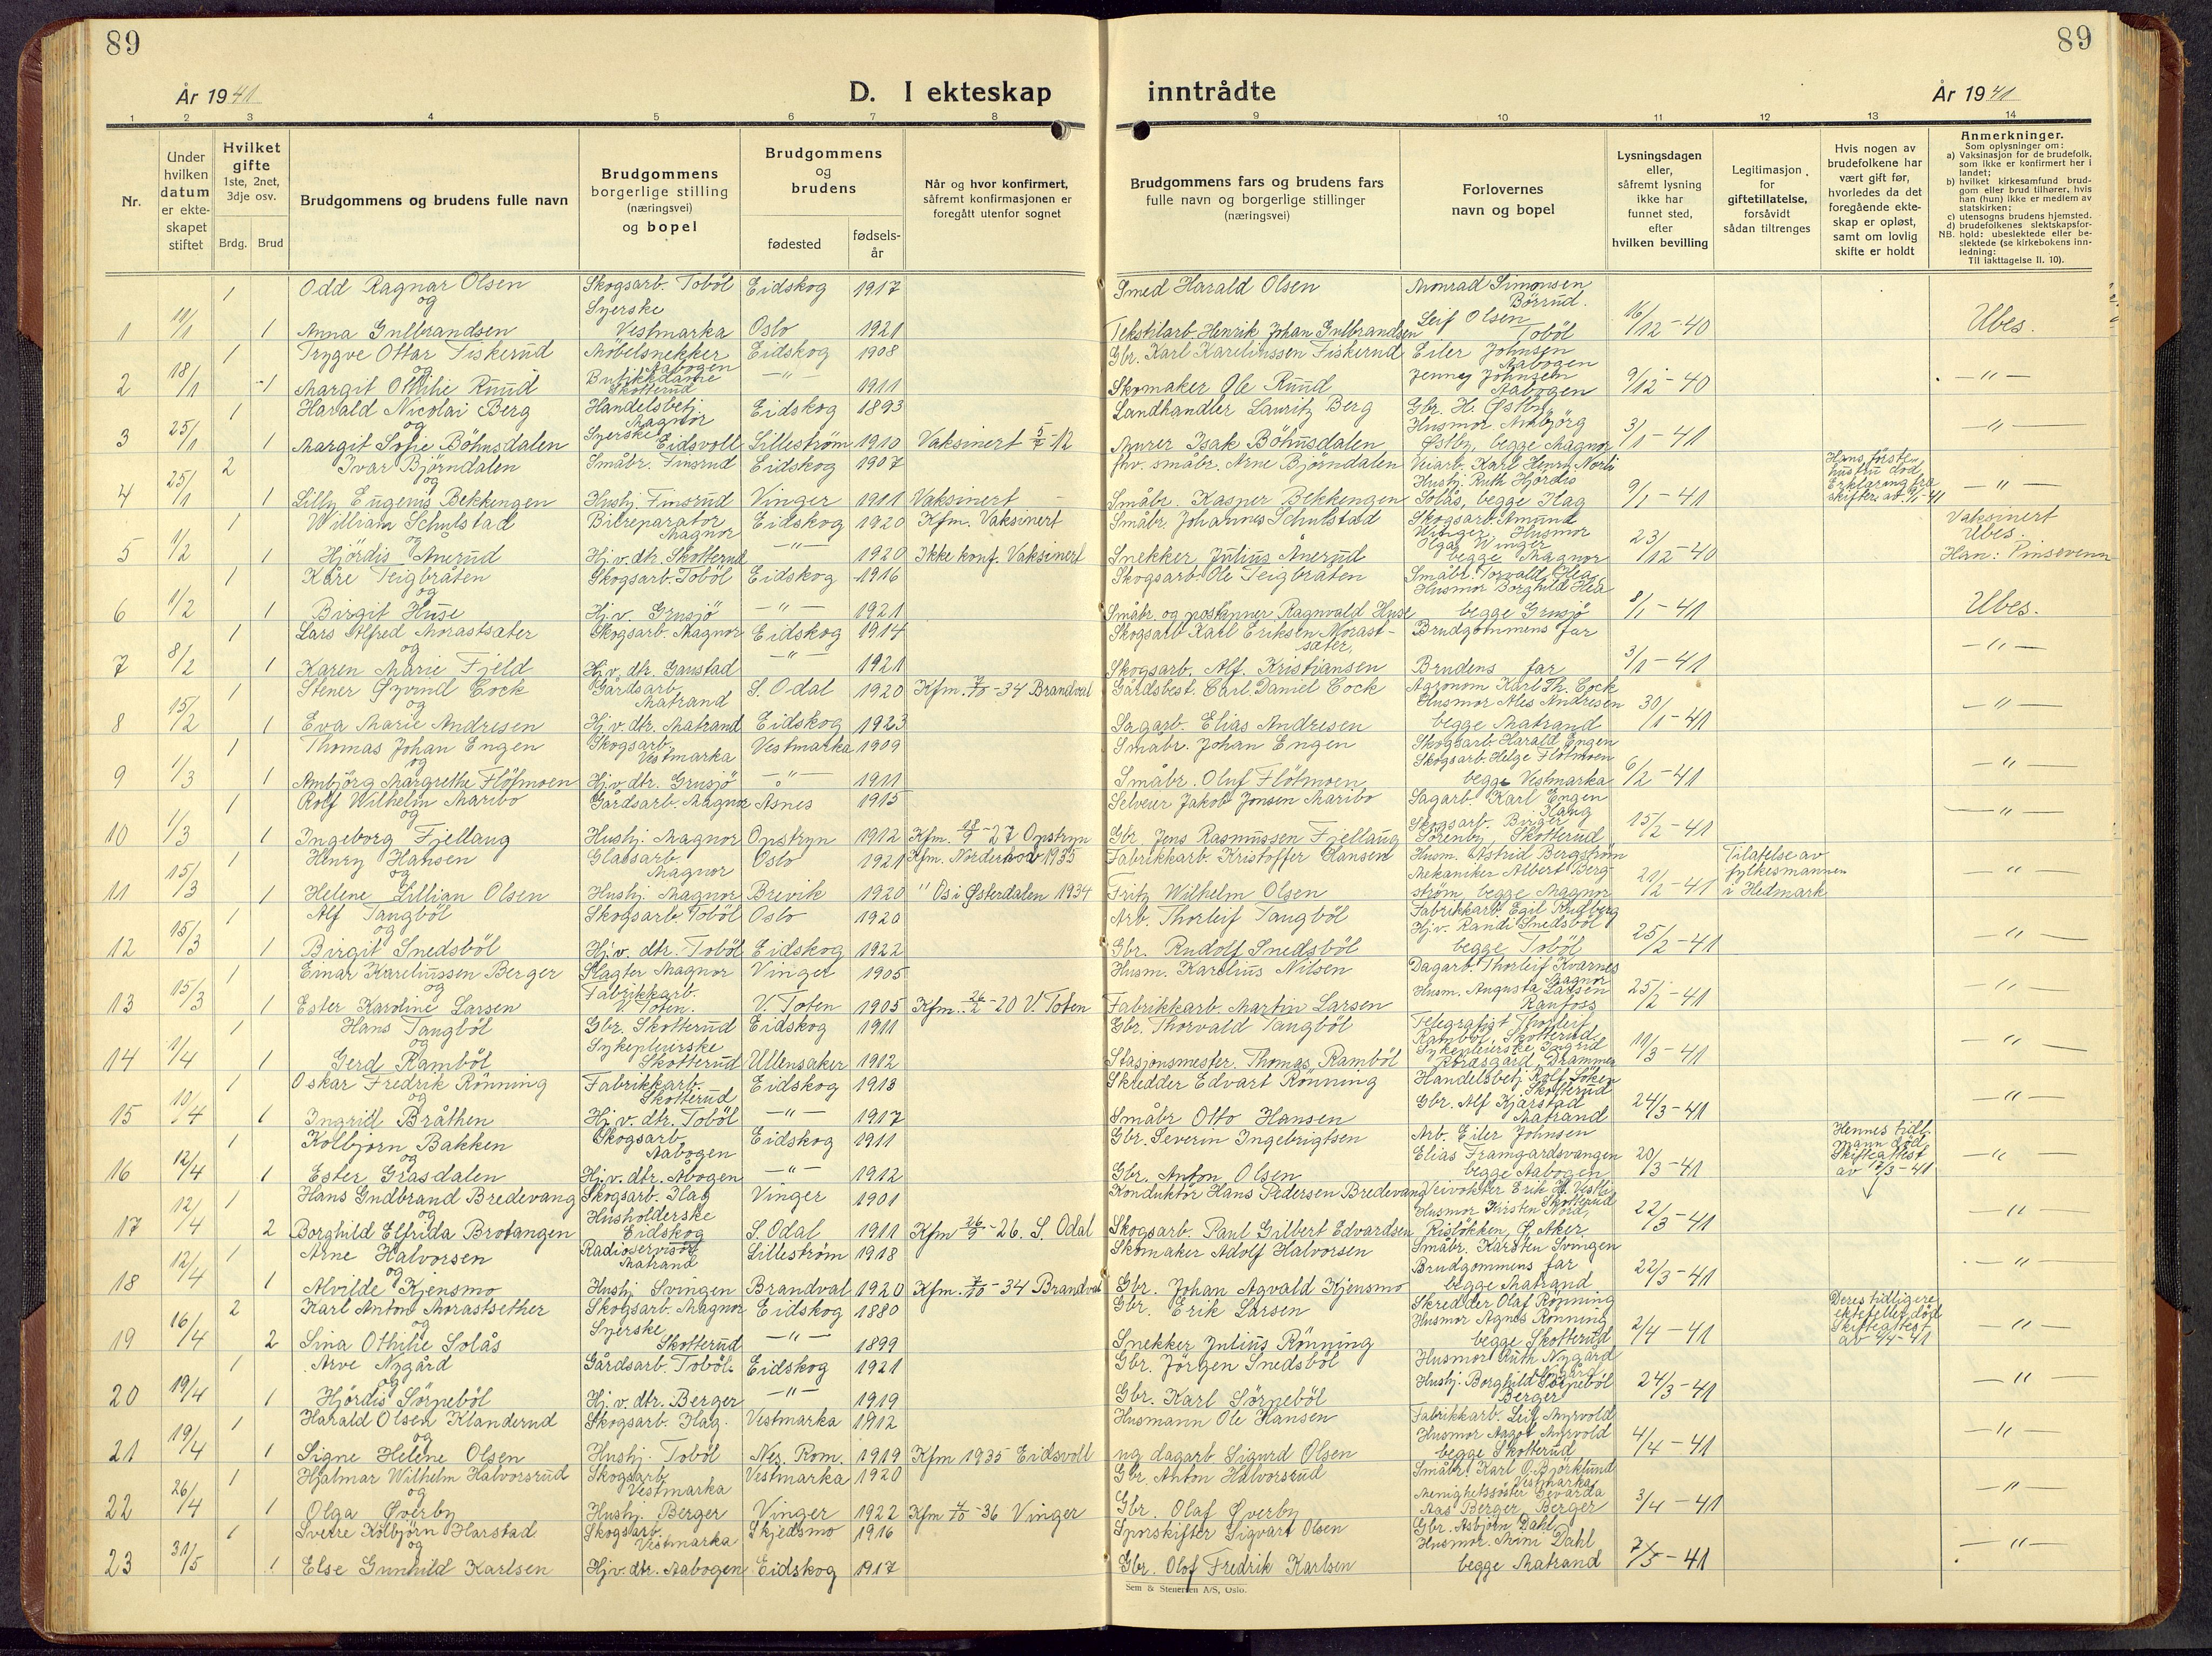 89
89
År 1941
D. I ekteskap inntrådte
År 1941
1 2 3 4 5 6 7 8 9 10 11 12 13 14
Nr.
Under hvilken datum er ekteskapet stiftet
Hvilket gifte 1ste, 2net, 3dje osv.
Brdg. Brud
Brudgommens og brudens fulle navn
Brudgommens borgerlige stilling (næringsvei) og bopel
Brudgommens og brudens
fødested
fødselsår
Når og hvor konfirmert, såfremt konfirmasjonen er foregått utenfor sognet
Brudgommens fars og brudens fars fulle navn og borgerlige stillinger (næringsvei)
Forlovernes navn og bopel
Lysningsdagen eller, såfremt lysning ikke har funnet sted, efter hvilken bevilling
Legitimasjon for giftetillatelse, forsåvidt sådan tiltrenges
Hvis nogen av brudefolkene har vært gift før, hvorledes da det foregående ekteskap er opløst, samt om lovlig skifte er holdt
Anmerkninger.
Som oplysninger om:
a) Vaksinasjon for de brudefolk, som ikke er konfirmert her i landet;
b) hvilket kirkesamfund brudgom eller brud tilhører, hvis han (hun) ikke er medlem av statskirken;
c) utensogns brudens hjemsted.
d) brudefolkenes slektskapsforhold: ubeslektede eller beslektede (se kirkebokens innledning:
NB.
Til iakttagelse II. 10).
1 Odd Ragnar Olsen Skogsarb. Toböl Eidskog 1917 Smed Harald Olsen Monrad Simonsen Börrud.
11/1 og Syerske Leif Olsen
1 1 Anna Gulbrandsen Vestmarka Oslo 1921 Tekstilarb. Henrik Johan Gulbrandsen Toböl 16/12-40 Ubes.
1 Trygve Ottar Fiskerud Möbelsnekker Aabogen Eidskog 1908 Gbr. Karl Kareliussen Fiskerud Eiler Johnsen Aabogen
18/1 og Butikkdame Jenny Johnsen
2 1 Margit Othilie Ruud Skotterud —"— 1911 Skomaker Ole Ruud Aabogen 9/12-40 —"—
1 Harald Nicolai Berg Handelsbetj. Magnor Eidskog 1893 Landhandler Lauritz Berg Gbr. H. Østby,
25/1 og Syerske Husmor
3 1 Margit Sofie Böhnsdalen Eidsvoll Lilleström 1910 Vaksinert 5/7-12 Murer Isak Böhnsdalen Østby, begge Magnor 3/1-41 —"—
2 Ivar Björndalen Småbr. Finsrud Eidskog 1907 fhv. småbr. Arne Björndalen Veiarb. Karl Henry Norli Hans förste hustru död.
25/1 og Husbj. Ruth Hjördis Erklæring fra
4 1 Lilly Eugenie Bekkengen Husbj. Finsrud Vinger 1911 Vaksinert Småbr. Kasper Bekkengen Solås, begge Hag 9/1-41 skifter. av 9/1-41 —"—
1 William Schulstad Bilreparatör Magnor Eidskog 1920 Kfm. Vaksinert Småbr. Johannes Schulstad Skogsarb. Amund Vaksinert
1/2 og Winger, Husmor Olga Winger Ubes.
5 1 Hjördis Ånerud Hj.v. dtr. Skotterud —"— 1920 Ikke konf. Vaksinert Snekker Julius Ånerud begge Magnor 23/12-40 Han: Pinsevenn
1 Kåre Teigbråten Skogsarb. Toböl Eidskog 1916 Skogsarb. Ole Teigbråten Småbr. Torvald
1/2 og Husmor Borghild
6 1 Birgit Huse Hj.v. Grusjö —"— 1921 Småbr. og poståpner Ragnvald Huse begge Grusjö 8/1-41 Ubes.
1 Lars Alfred Morastsæter Skogsarb. Magnor Eidskog 1914 Skogsarb. Karl Eriksen Morastsæter, Brudgommens far
8/2 og
7 1 Karen Marie Fjeld Hj.v. dtr. Gaustad —"— 1921 Skogsarb. Alf. Kristiansen Brudens far 3/1-41 —"—
1 Stener Øyvind Cock Gårdsarb. Matrand S. Odal 1920 Kfm. 7/10-34 Brandval Gårdsbest. Carl Daniel Cock Agronom Karl Th. Cock
15/2 og Husmor Andresen
8 1 Eva Marie Andresen Hj.v. dtr. Matrand Eidskog 1923 Sagarb. Elias Andresen begge Matrand 30/1-41 —"—
1 Thomas Johan Engen Skogsarb. Vestmarka Vestmarka 1909 Småbr. Johan Engen Skogsarb. Harald Engen
1/3 og Skogsarb. Helge Flötmoen
9 1 Ambjörg Margrethe Flötmoen Hj.v. dtr. Grusjö —"— 1911 Småbr. Oluf Flötmoen begge Vestmarka 6/2-41 —"—
1 Rolf Wilhelm Maribo Gårdsarb. Magnor Åsnes 1915 Selveier Jakob Jonsen Maribo Sagarb. Karl Engen
1/3 og Skogsarb. Birger
10 1 Ingeborg Fjellaug Husbj. Magnor Opstryn 1912 Kfm. 18/9-27 Opstryn Gbr. Jens Rasmussen Fjellaug Sörenby, Skotterud 15/2-41 —"—
1 Henry Hansen Glassarb. Magnor Oslo 1921 Kfm. Norderhov 1935 Fabrikkarb. Kristoffer Hansen Husm. Astrid Bergström Tilatelse av
15/3 og Mekaniker Albert Berg- fylkesmannen
11 1 Helene Lillian Olsen Husbj. Magnor Brevik 1920 " Os i Østerdalen 1934 Fritz Wilhelm Olsen ström, begge Magnor 21/2-41 i Hedmark —"—
1 Alf Tangböl Skogsarb. Toböl Oslo 1920 Arb. Thorleif Tangböl Fabrikkarb. Egil Rudberg
15/3 og Hj.v. Randi Snedsböl
12 1 Birgit Snedsböl Hj.v. dtr. Toböl Eidskog 1922 Gbr. Rudolf Snedsböl begge Toböl 25/2-41 —"—
1 Einar Kareliussen Berger Slagter Magnor Vinger 1905 Husm. Karelius Nilsen Dagarb. Thorleif Kvarnes Magnor
15/3 og Fabrikkarb. Husm. Augusta Larsen
13 1 Ester Karoline Larsen V. Toten. V. Toten 1905 Kfm. 26/2-20 V. Toten Fabrikkarb. Martin Larsen Raufoss 25/2-41 —"—
1 Hans Tangböl Gbr. Skotterud Eidskog 1911 Gbr. Thorvald Tangböl Telegrafist Thorleif
1/4 og Sykepleierske Ramböl, Skotterud Sykepleierske Ingrid
14 1 Gerd Ramböl Skotterud Ullensaker 1912 Stasjonsmester Thomas Ramböl Drammen 11/3-41 —"—
1 Oskar Fredrik Rönning Fabrikkarb. Skotterud Eidskog 1913 Skredder Edvart Rönning Handelsbetj. Rolf Skotterud
10/4 og Gbr. Alf Kjärstad
15 1 Ingrid Bråthen Hj.v. dtr. Toböl —"— 1917 Småbr Otto Hansen Matrand 24/3-41 —"—
1 Kolbjörn Bakken Skogsarb. Aabogen Eidskog 1911 Gbr. Severin Ingebrigtsen Arb. Eiler Johnsen Hennes tidl. mann död.
12/4 og Elias Framgardsvangen Skifteattest
16 1 Ester Grasdalen Hj.v. dtr. Åbogen —"— 1912 Gbr. Anton Olsen begge Aabogen 20/3-41 av 17/3-41 —"—
1 Hans Gudbrand Bredevang Skogsarb. Hag Vinger 1901 Konduktör Hans Pedersen Bredevang Veivokter Erik H. Vestli Skotterud
12/4 og Husholderske Husmor Kirsten Nord,
17 2 Borghild Elfrida Brotangen Eidskog S. Odal 1911 Kfm 26/9-26. S. Odal Skogsarb. Paul Gilbert Edvardsen Risløkken, Ø. Aker 22/3-41 —"—
1 Arne Halvorsen Radioservisör Matrand Lilleström 1918 Skomaker Adolf Halvorsen Småbr. Karsten Svingen
12/4 og Brudgommens far
18 1 Alvilde Kjensmo Husbj. Svingen Brandval 1920 Kfm. 7/10-34 Brandval Gbr. Johan Agvald Kjensmo begge Matrand 22/3-41 —"—
2 Karl Anton Morastsether Skogsarb. Magnor Eidskog 1880 Gbr. Erik Larsen Skredder Olaf Rönning Deres tidligere
16/4 og Syerske Husmor Agnes Rönning ektefeller död Skifteattest
19 2 Sina Othilie Solås Skotterud —"— 1899 Snekker Julius Rönning begge Skotterud 2/4-41 av 4/4-41 —"—
1 Arve Nygård Gårdsarb. Toböl. Eidskog 1921 Gbr. Jörgen Snedsböl Husmor Ruth Nygård
19/4 og Husbj. Borghild Sörpeböl
20 1 Hjördis Sörpeböl Hj.v. dtr. Berger —"— 1919 Gbr. Karl Sörpeböl Berger 24/3-41 —"—
1 Harald Olsen Klanderud Skogsarb. Hag. Vestmarka 1912 Husmann Ole Hansen Fabrikkarb. Leif Myrvold
19/4 og Husmor Aagot Myrvold
21 1 Signe Helene Olsen Husbj. Toböl Nes, Rom. 1919 Kfm 1935 Eidsvoll ug dagarb. Sigurd Olsen begge Skotterud 4/4-41 —"—
1 Hjalmar Wilhelm Halvorsrud Skogsarb. Vestmarka Vestmarka 1920 Gbr Anton Halvorsrud Småbr. Karl O. Björklund Vestmarka
26/4 og Menighetssöster Gevarda
22 1 Olga Øverby Husbj. Berger Vinger 1922 Kfm 4/10-36 Vinger Gbr. Olaf Øverby Aas Berger, Berger 3/4-41 —"—
1 Sverre Kolbjörn Harstad Skogsarb. Vestmarka Skjedsmo 1916 Sporskifter Sigvart Olsen Gbr. Asbjörn Dahl
31/5 og Husmor Mimi Dahl
23 1 Else Gunhild Karlsen Hj.v. dtr. Aabogen Eidskog 1917 Gbr. Olof Fredrik Karlsen begge Matrand 7/5-41 —"—
Sem & Stenersen A/S, Oslo.